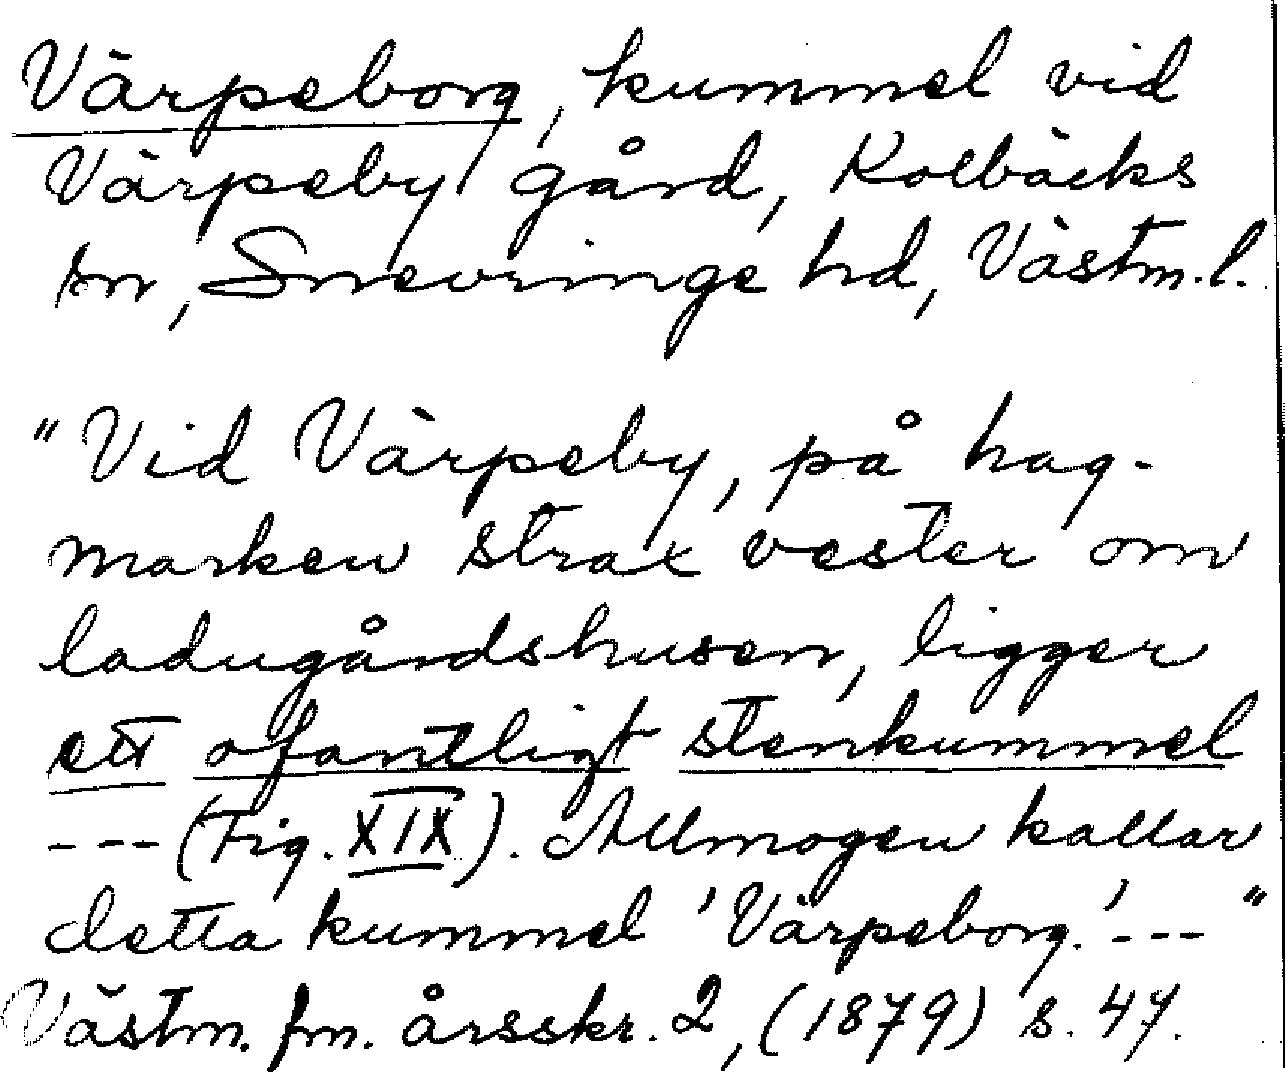 Värpeborg, kummel vid
Värpeby gård, Kolbäcks
sn, Snevringe hd, Västm. l.
"Vid Värpeby, på hag-
marken strax vester om
ladugårdshusen, ligger
ett ofantligt stenkummel
--- (Fig. XIX). Allmogen kallar
detta kummel 'Värpeborg.' --- "
Västm. fm. årsskr. 2, (1879) s. 47.